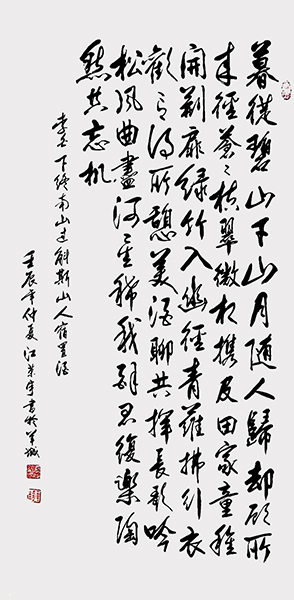 暮從碧山下山月隨人歸却顧所
来徑蒼々橫翠微相攜及田家童稚
開荊扉綠竹入幽徑青蘿拂行衣
歡言得所憩美酒聊共揮長歌吟
松風曲盡河星稀我醉君復樂陶
然共忘机
李白下終南山過斛斯山人宿置酒
壬辰年仲夏江書於羊城